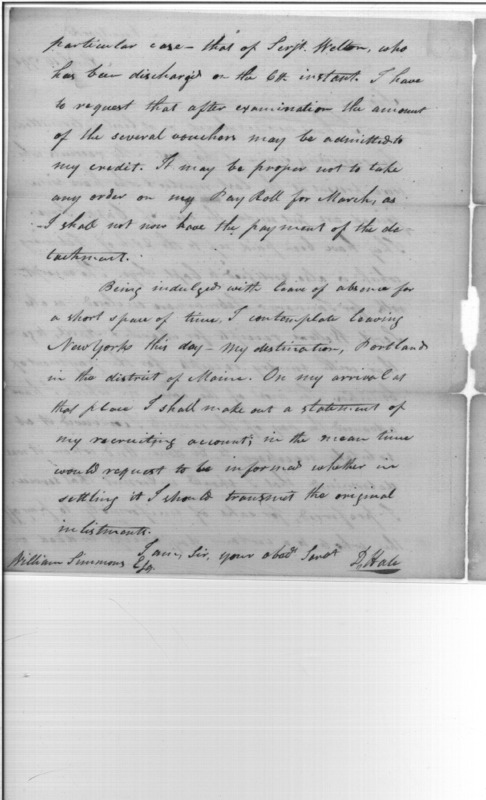 particular case - that of Serjt. Welton, who
has been discharged on the 6th instant. I have
to request that after examination the amount
of the several vouchers may be admitted to
my credit. It may be proper not to take
any order on my Pay Roll for March, as
I shall not now have the payment of the de
tachment.
Being indulged with leave of absence for
a short space of time, I contemplate leaving
New York this day - my destination, Portland
in the district of Maine. On my arrival at
that place I shall make out a statement of
my recruiting account; in the mean time
would request to be informed whether in
settling it I should transmit the original
inlistments.
I am, Sir, your obedt Servt
William Simmons Esq. D Hale